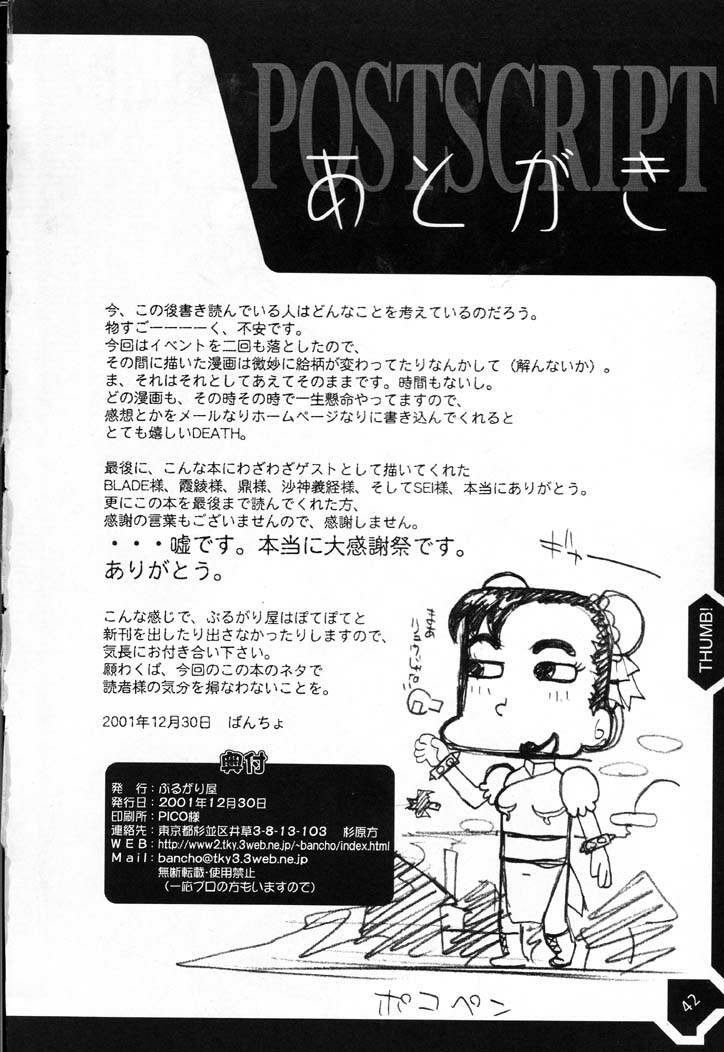 POSTSCRIPT
あとがき
今、この後書き読んでいる人はどんなことを考えているのだろう。
物すごーーーーく、不安です。
今回はイベントを二回も落としたので、
その間に描いた漫画は微妙に絵柄が変わってたりなんかして（解んないか）。
ま、それはそれとしてあえてそのままです。時間もないし。
どの漫画も、その時その時で一生懸命やってますので、
感想とかをメールなりホームページなりに書き込んでくれると
とても嬉しいDEATH。
最後に、こんな本にわざわざゲストとして描いてくれた
BLADE様、霞綾様、鼎様、沙神義経様、そしてSEI様、本当にありがとう。
更にこの本を最後まで読んでくれた方、
感謝の言葉もございませんので、感謝しません。
・・・嘘です。本当に大感謝祭です。
ありがとう。
こんな感じで、ぶるがり屋はぽてぽてと
新刊を出したり出さなかったりしますので、
気長にお付き合い下さい。
願わくば、今回のこの本のネタで
読者様の気分を損なわないことを。
2001年12月30日　ばんちょ
ギャー
THUMB!
奥付
発　行：ぶるがり屋
発行日：2001年12月30日
印刷所：PICO様
連絡先：東京都杉並区井草3-8-13-103　杉原方
ＷＥＢ：http://www2.tky.3web.ne.jp/~bancho/index.html
Ｍail：bancho@tky3.3web.ne.jp
無断転載・使用禁止
（一応プロの方もいますので）
ポコペン
42